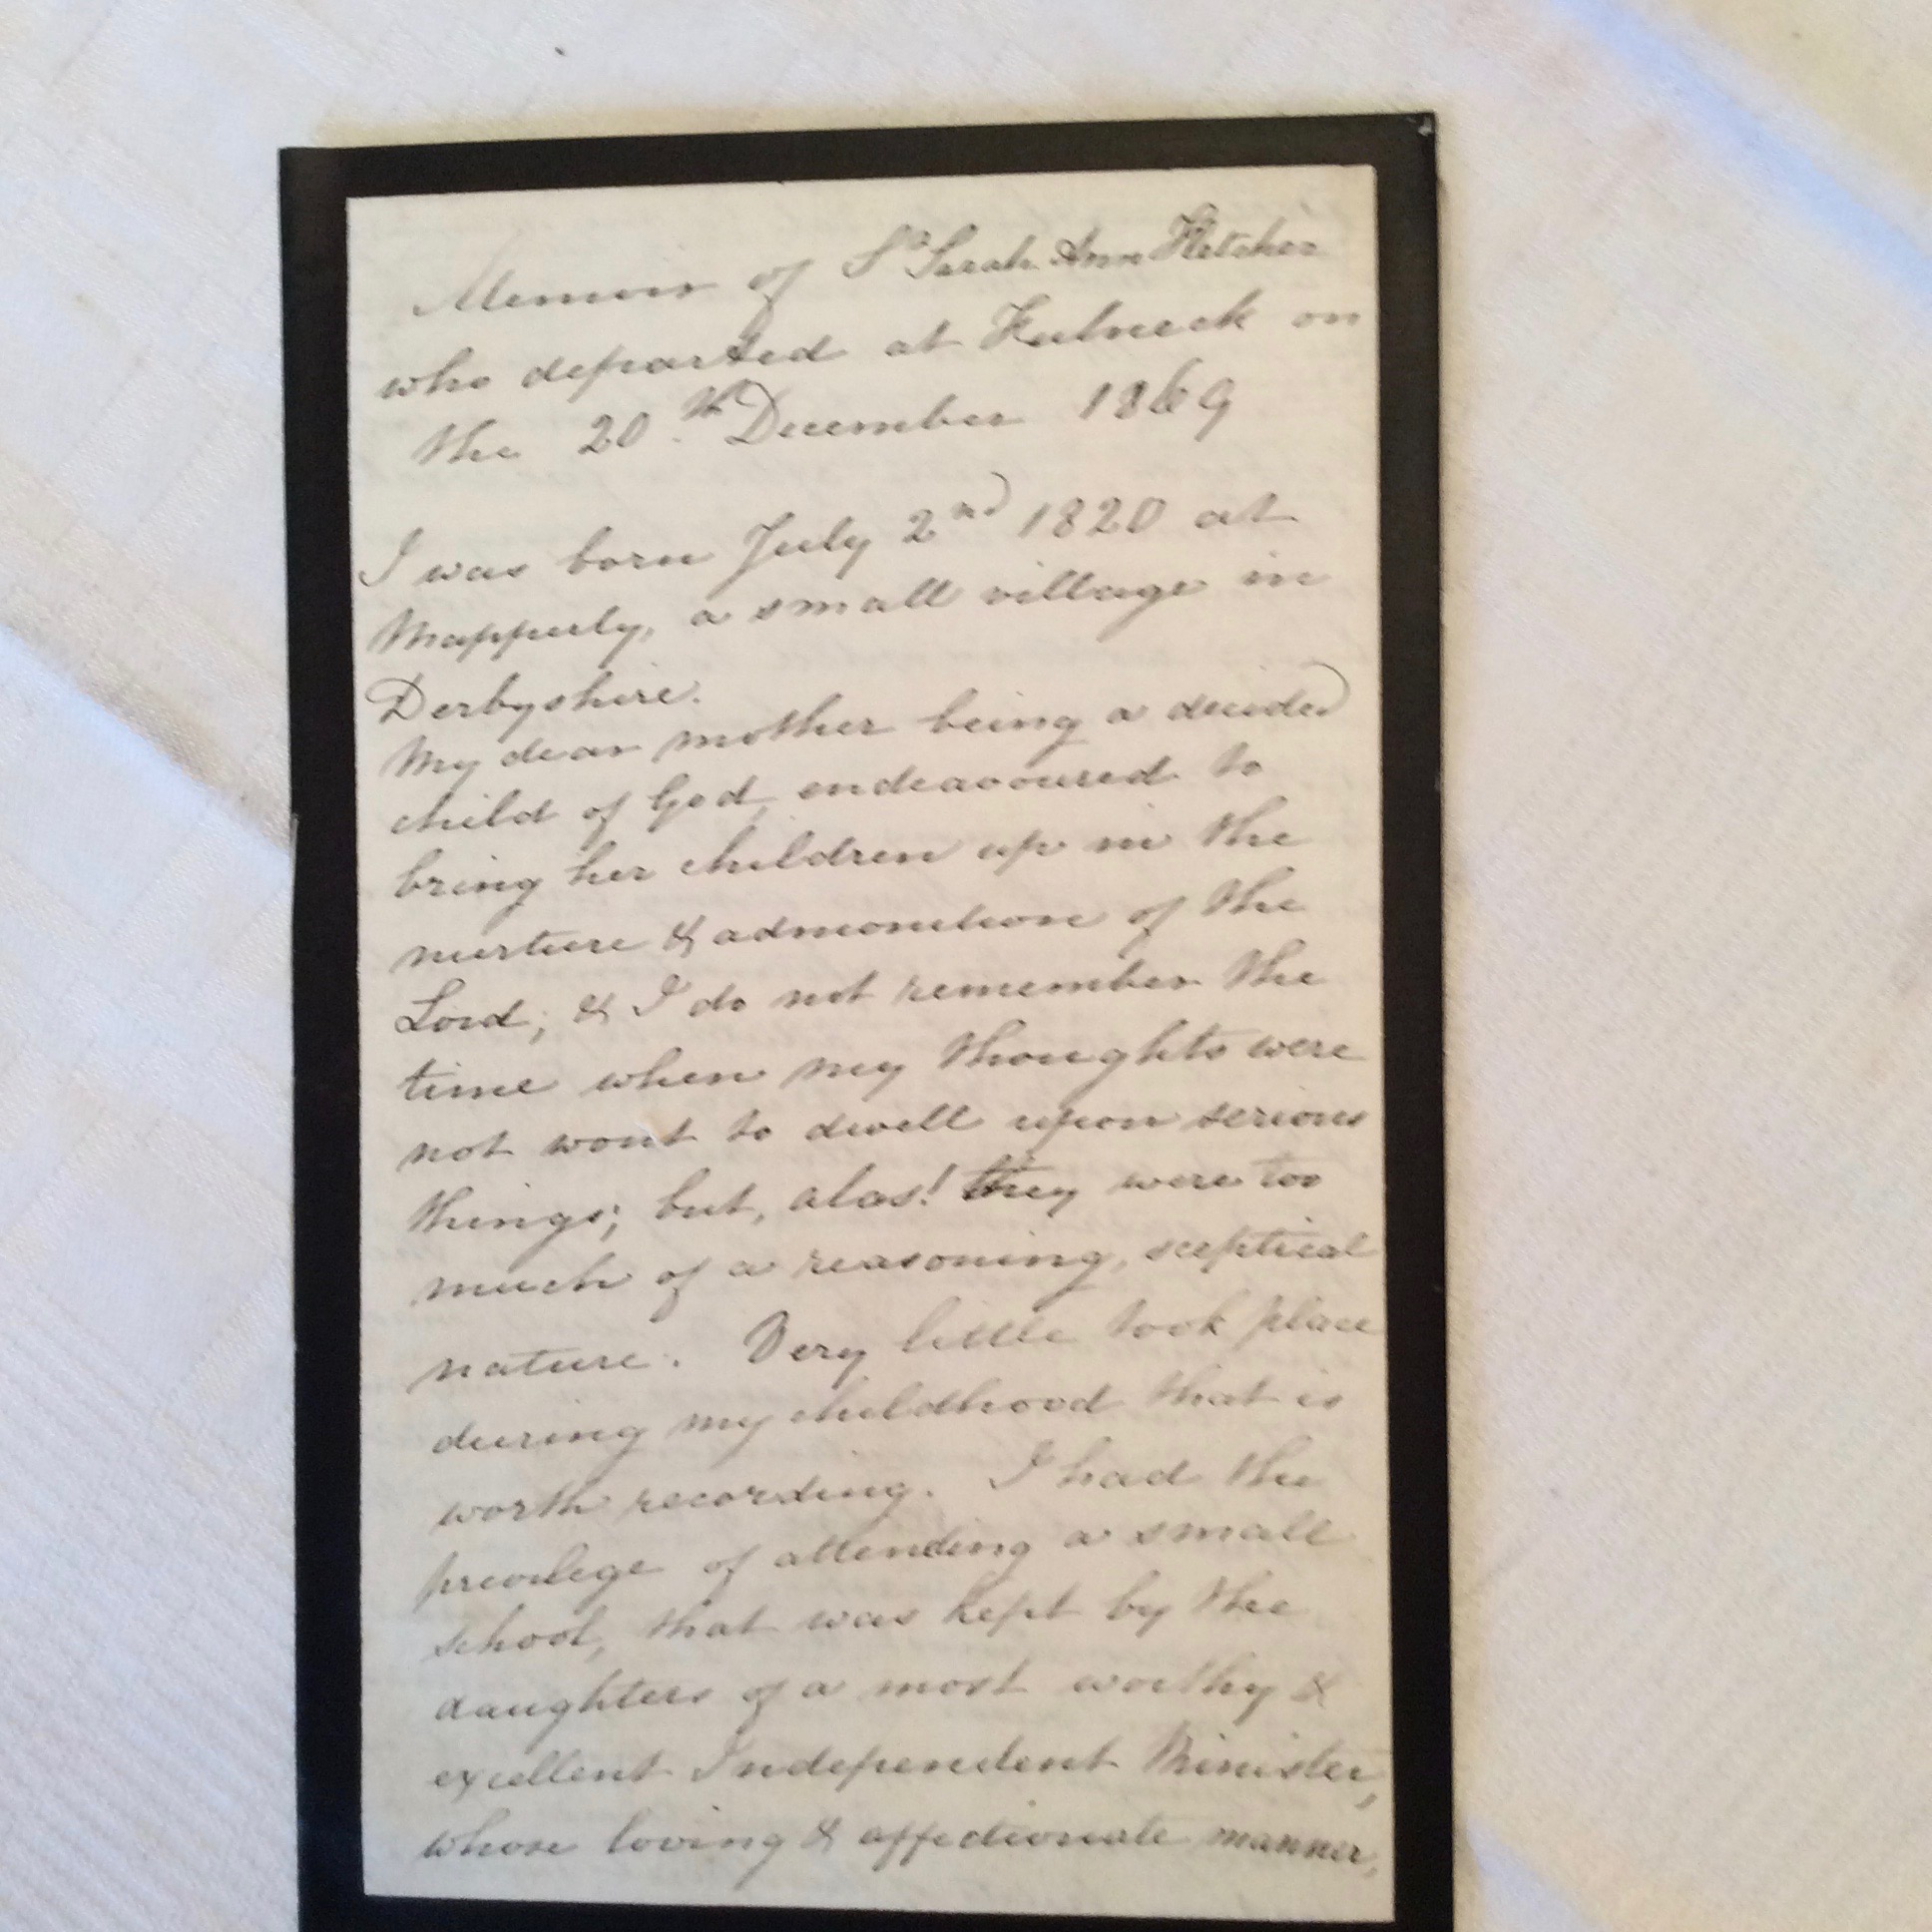 Memoir of Sr Sarah Ann Fletcher
who departed at Fulneck on
the 20th December 1869
I was born July 2nd 1820 at
Mapperly, a small village in
Derbyshire.
My dear mother being a decided
child of God, endeavoured to
bring her children up in the
nurture & admonition of the
Lord; & I do not remember the
time when my thoughts were
not wont to dwell upon serious
things; but, alas! they were too
much of a reasoning, sceptical
nature. Very little took place
during my childhood that is
worth recording. I had the
privilege of attending a small
school, that was kept by the
daughters of a most worthy &
excellent Independent Minister,
whose loving & affectionate manner,